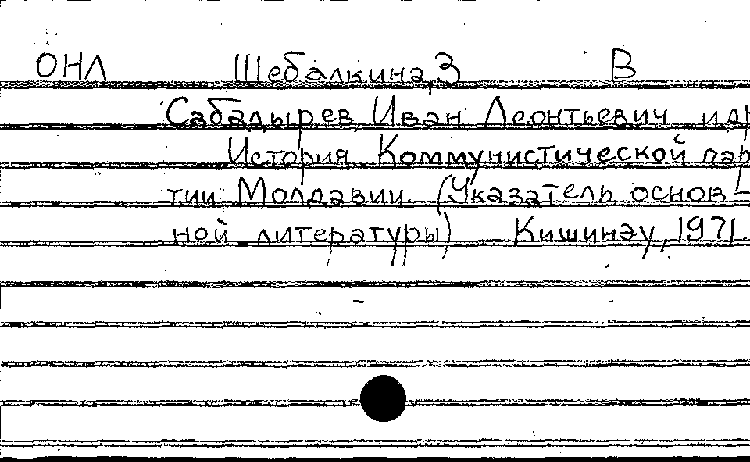 ОНЛ Шебалкина,З В
Сабадырев, Иван Леонтьевич и др
История Коммунистической пар
тии Молдавии. (Указатель основ-
ной литературы) Кишинэу, 1971.